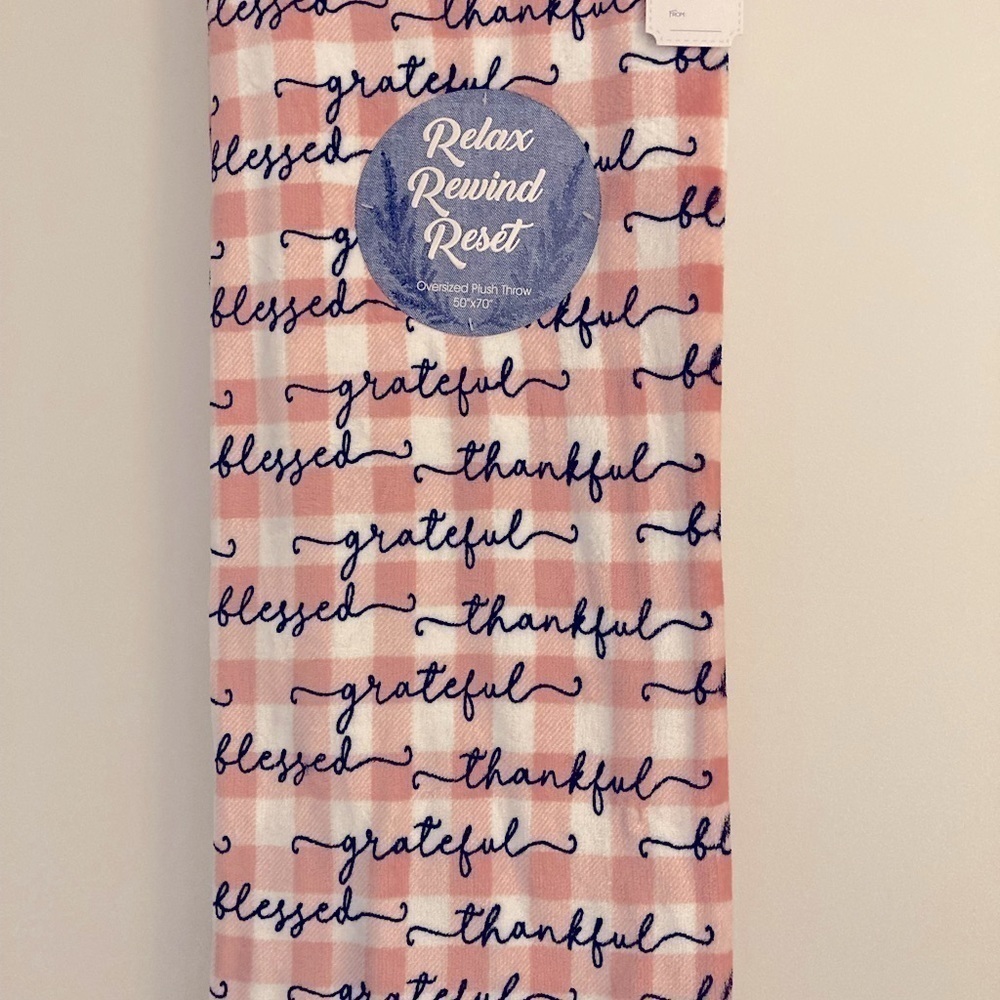 blessed thankful
FROM:
grateful bl
blessed ul
Relax
Rewind
Reset
Oversized Plush Throw
50"x70"
g bl
blessed kful
grateful bl
blessed thankful
grateful bl
blessed thankful
grateful bl
blessed thankful
grateful bl
blessed thankful
grateful bl